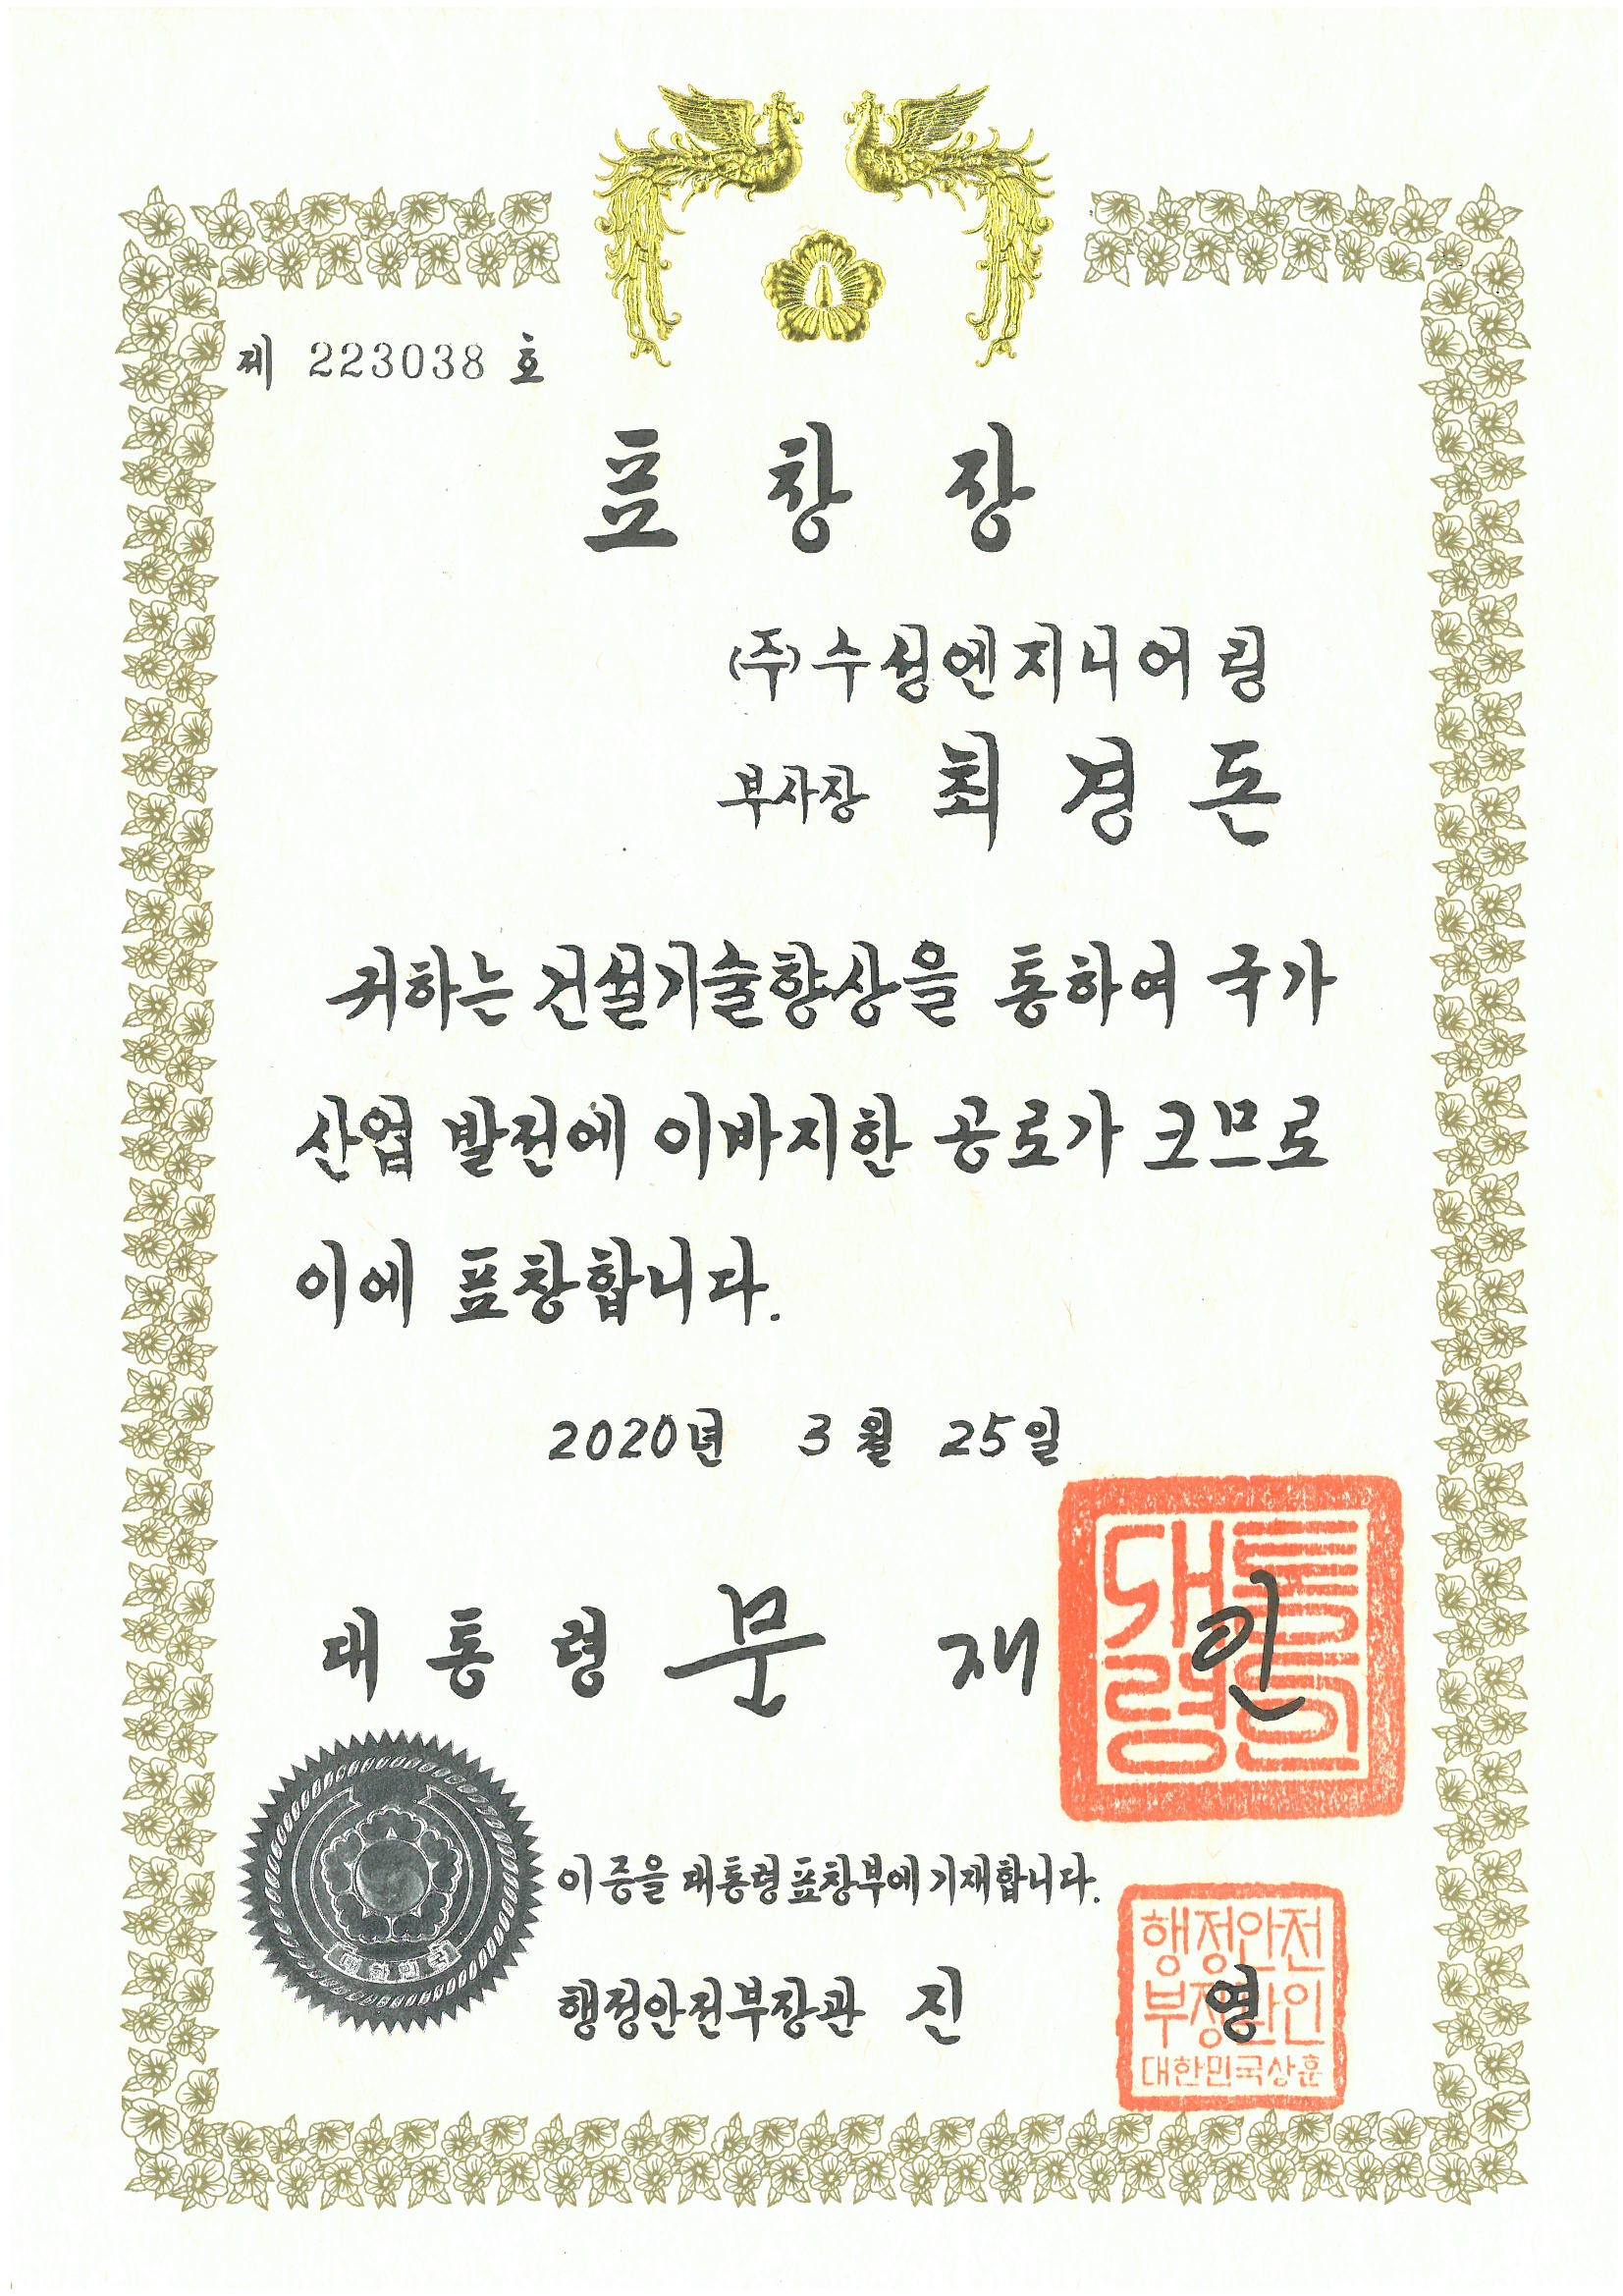 제 223038 호
표 창 장
(주)수성엔지니어링
부사장 최 경 돈
귀하는 건설기술향상을 통하여 국가
산업 발전에 이바지한 공로가 크므로
이에 표창합니다.
2020년 3월 25일
대 통 령 문 재 인
대통령인
이 증을 대통령표창부에 기재합니다.
대한민국
행정안전부장관 진 영
행정안전
부장관인
대한민국상훈